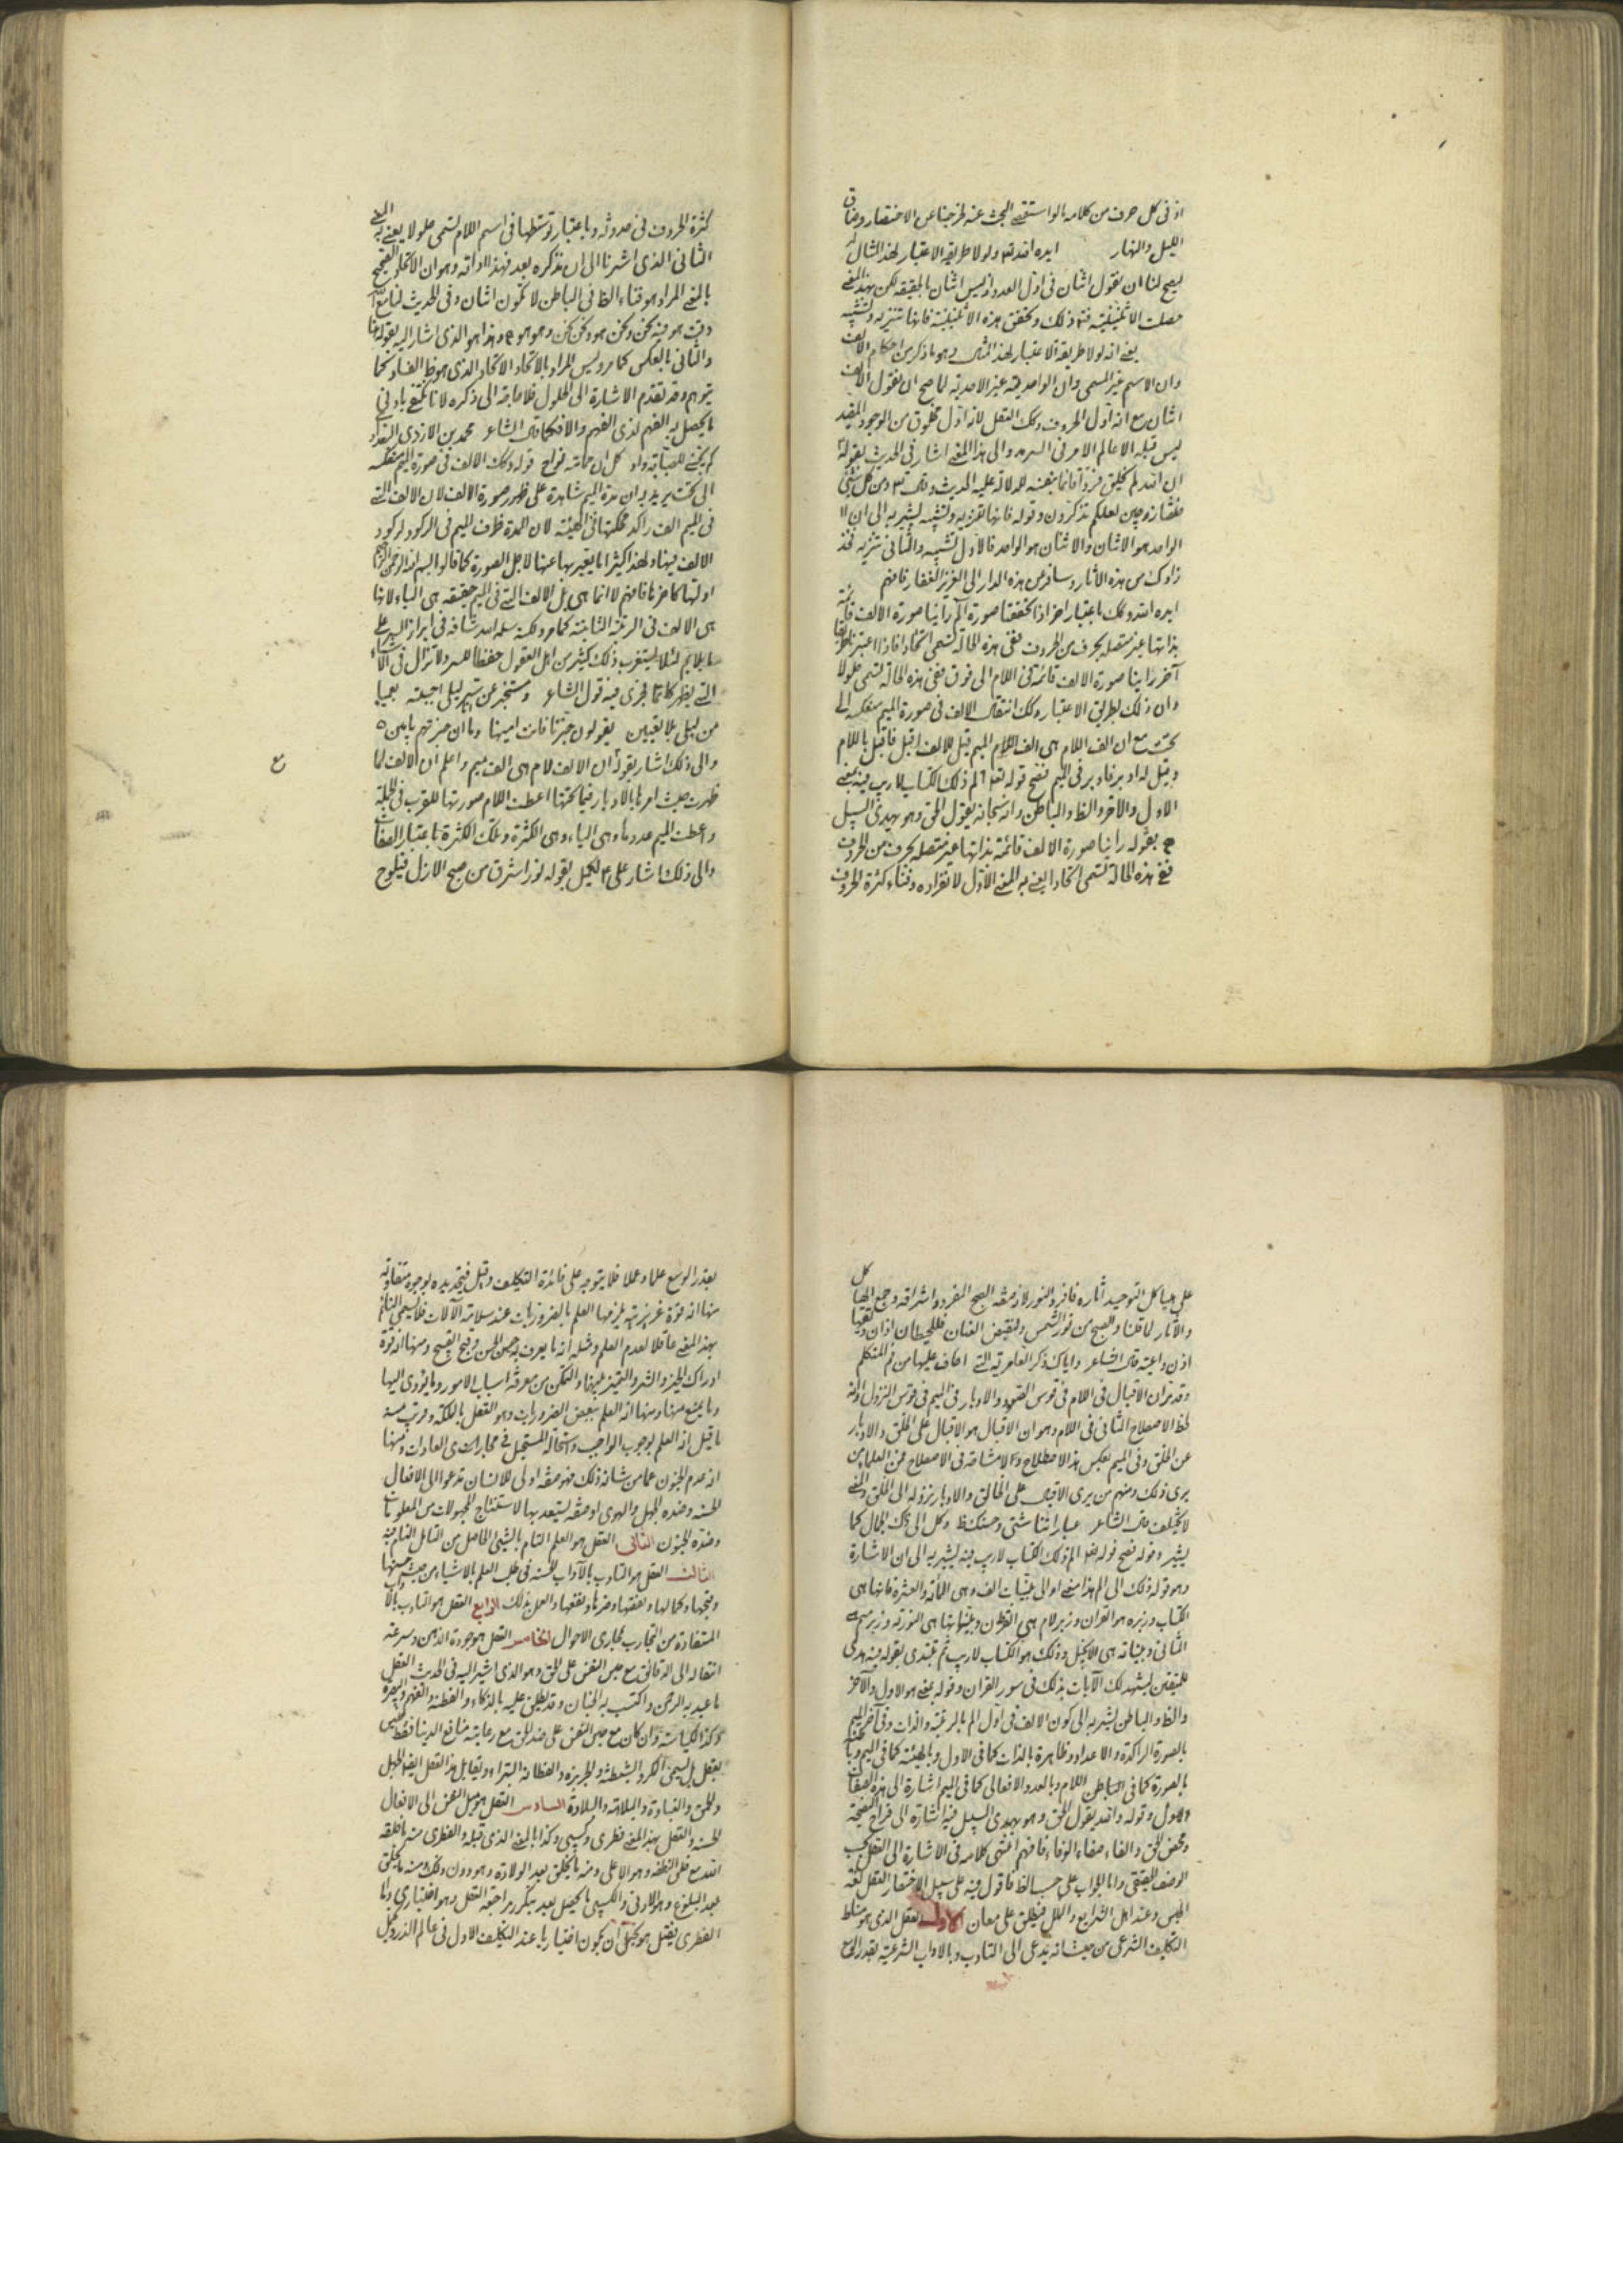 اذ فى كل حرف من كلامه الواستقصى البحث عنه لخرجنا عن الاختصار وضاق
الليل والنهار ايده الله تع ولولا طريقة الاعتبار لهذا المثال لم
يصح لنا ان نقول اثنان فى اول العدد اذ ليس اثنان بالحقيقة لكن بهذا المعنى
حصلت الاثنينية فتم ذلك وتحقق هذه الاثنينية فانها تنزيه وتشبيه
يعنى انه لولا طريقة الاعتبار لهذا المثل وهو ما ذكر من احكام الالف
وان الاسم غير المسمى وان الواحدية غير الاحدية لما صح ان نقول الالف
اثنان مع انه اول الحروف وتلك العقل لانه اول مخلوق من الوجود المقيد
ليس قبله الا عالم الامر فى السرمد والى هذا المعنى اشار فى الحديث بقوله
ان الله لم يخلق فردا قائما بنفسه للدلالة عليه الحديث وقال تع ومن كل شئ
خلقنا زوجين لعلكم تذكرون وقوله فانها تنزيه وتشبيه يشير به الى ان
الواحد هو الاثنان والاثنان هو الواحد فالاول تشبيه والثانى تنزيه فخذ
زادك من هذه الاثار وسافر من هذه الدار الى العزيز الغفار فافهم
ايده الله وتلك باعتبار اخر اذا تحققنا صورة الم رأينا صورة الالف قائمة
بذاتها غير متصلة بحرف من الحروف ففى هذه الحالة تسمى اتحادا فاذا اعتبرنا طريقا
آخر راينا صورة الالف قائمة فى اللام الى فوق ففى هذه الحالة تسمى حلولا
وان ذلك بطريق الاعتبار وتلك انتقال الالف فى صورة الميم منعكسة الى
تحت مع ان الف اللام هى الف الميم قيل للالف اقبل فاقبل باللام
وقيل له ادبر فادبر فى الميم فصح قوله تع الم ذلك الكتاب لا ريب فيه يعنى
الاول والاخر والظاهر والباطن وانه سبحانه يقول الحق وهو يهدى السبيل
بقوله راينا صورة الالف قائمة بذاتها غير متصلة بحرف من الحروف
ففى هذه الحالة تسمى اتحادا يعنى به المعنى الاول لانفراده وفناء كثرة الحروف
كثرة الحروف فى حدوثه وباعتبار توسطها فى اسم اللام تسمى حلولا يعنى به المعنى
الثانى الذى اشرنا الى ان نذكره بعد فهذا اوانه وهو ان الاتحاد الصحيح
بالمعنى المراد هو فناء الظاهر فى الباطن لا تكون اثنان وفى الحديث لنا مع الله
وقت هو فيه نحن ونحن هو ونحن نحن وهو هو وهذا هو الذى اشار اليه بقوله
والثانى بالعكس كما مر وليس المراد بالاتحاد الاتحاد الذى هو ظاهر الفساد كما
يتوهم وقد تقدم الاشارة الى الحلول فلا حاجة الى ذكره لانا نقنع بادنى
ما يحصل به الفهم لذى الفهم والا فكما قال الشاعر محمد بن الازدى البغداد
كل ان حانته فواح قوله وتلك الالف فى صورة الميم منعكسة
الى تحت يريد به ان مدة الميم شاهدة على ظهور صورة الالف لان الالف التى
فى الميم الف راكد محلتها فى الهيئة لان المدة ظرف الميم فى الركود لركود
الالف فيها ولهذا كثيرا ما يعبر بها عنها لاجل الصورة كما قالوا بسم الله الرحمن الرحيم
اولتها كاخرها فافهم لا انما هى بل الالف التى فى الميم حقيقة هى الياء لانها
هى الالف فى الرتبة الثانية كما مر ولكنه سلمه الله شافه فى ابراز السر على
ما يلايم لئلا يستغرب ذلك كثير من اهل العقول حفظا للسر ولا تزال فى الاشياء
التى يظهر كاتما فجرى فيه قول الشاعر ومستخبر عن سر ليلى اجبته بعميا
من ليلى بلا يقين يقولون خبرنا فانت امينها وما ان خبرتهم بامين
والى ذلك اشار بقوله ان الالف لام هى الف ميم واعلم ان الالف لما
ظهرت حيث امرها بالادبار فيما تحتها اعطت اللام صورتها للقرب فى الجملة
واعطت الميم عددها وهى الياء وهى الكثرة وتلك الكثرة باعتبار الصفات
والى ذلك اشار على ع لكميل بقوله نور اشرق من صبح الازل فيلوح
ع
على هياكل التوحيد آثاره فافرد النور لانه صفة الصبح المفرد واشراقه وجمع الهياكل
والآثار لما قلنا والصبح من نور الشمس ولنقبض العنان فللحيطان اذان وتعيها
اذن واعية قال الشاعر واياك ذكر العامرية التى اخاف عليها من فم المتكلم
وقد مر ان الاقبال فى اللام فى قوس الصعود والادبار فى الميم فى قوس النزول او انه
لحظ الاصطلاح الثانى فى اللام وهو ان الاقبال هو الاقبال على الخلق والادبار
عن الخلق وفى الميم بعكس هذا الاصطلاح ولا مشاحة فى الاصطلاح فمن العلماء من
يرى ذلك ومنهم من يرى الاقبال على الخالق والادبار نزوله الى الخلق والمعنى
لا يختلف قال الشاعر عباراتنا شتى وحسنك واحد وكل الى ذاك الجمال كما
يشير وقوله فصح قوله تع الم ذلك الكتاب لا ريب فيه يشير به الى ان الاشارة
وهو قوله ذلك الى الم هذا معنى او الى بينات الف وهى المائة والعشرة فانها هى
الكتاب وزبره هو القرآن وزبر لام هى الفرقان وبيناتها هى التورية وزبر ميم
الثانى وبيناته هى الانجيل وذلك هو الكتاب لا ريب ثم تبتدى بقوله فيه هدى
للمتقين ليشهد لك الآيات بذلك فى سور القرآن وقوله يعنى هو الاول والآخر
والظاهر والباطن يشير به الى كون الالف فى اول الم بالرتبة والذات وفى آخر الميم
بالصورة الراكدة والاعداد وظاهرة بالذات كما فى الاول وبالهيئة كما فى الميم
بالصورة كما فى الباطن اللام وبالعدد والافعالى كما فى الميم اشارة الى هذه الصفات
الاول وقوله والله يقول الحق وهو يهدى السبيل فيه اشارة الى فراخ النصيحة
ومحض الحق والفاء صفاء الوفاء فافهم انتهى كلامه فى الاشارة الى العقل بحسب
الوضع الحقيقى واما الجواب على حسب الظاهر فاقول فيه على سبيل الاختصار العقل لغة
الحبس وعند اهل الشرايع والملل فيطلق على معان الاول العقل الذى هو مناط
التكليف الشرعى من حيث انه يدعى الى التادب بالاداب الشرعية بقدر الوسع
بقدر الوسع علما وعملا فلا يتوجه على فائدة التكليف وقيل فى تحديده بوجوه متقاربة
منها انه قوة غريزية يلزمها العلم بالضروريات عند سلامة الآلات فلا يسمى النائم
بهذا المعنى عاقلا لعدم العلم ومثله انه ما يعرف به حسن الحسن وقبح القبيح ومنها انه قوة
ادراك الخير والشر والتمييز بينهما والتمكن من معرفة اسباب الامور وما يؤدى اليها
وما يمنع منها ومنها انه العلم ببعض الضروريات وهو العقل بالملكة وقريب منه
ما قيل انه العلم بوجوب الواجب واستحالة المستحيل فى مجارى العادات ومنها
انه عدم الجنون عما من شانه ذلك فهو صفة اولى للانسان تدعوا الى الافعال
الحسنة وضده الجهل والهوى او صفة يستعد بها لاستنتاج المجهولات من المعلومات
وضده الجنون الثانى العقل هو العلم التام بالشئ الحاصل من التامل التام فيه
الثالث العقل هو التادب بالآداب الحسنة فى طلب العلم بالاشياء من حيث حسنها
وقبحها وكمالها ونقصها وضرها ونفعها والعمل بذلك الرابع العقل هو التادب بالآداب
المستفادة من التجارب بمجارى الاحوال الخامس العقل هو جودة الذهن وسرعة
انتقاله الى الدقائق مع حبس النفس على الحق وهو الذى اشير اليه فى الحديث العقل
ما عبد به الرحمن واكتسب به الجنان وقد يطلق عليه بالذكاء والفطنة والفهم والبصيرة
وكذا الكياسة وان كان مع حبس النفس على ضد الحق مع رعاية منافع الدنيا فقط فليس
بعقل بل يسمى المكر والشيطنة والجربزة والفطانة البتراء ويقابل هذا العقل ايضا الجهل
والحمق والغباوة والبلاهة والبلادة السادس العقل هو ميل النفس الى الافعال
الحسنة والعقل بهذا المعنى فطرى وكسبى وكذا بالمعنى الذى قبله والفطرى منه ما خلقه
الله مع خلق النطفة وهو الاعلى ومنه ما يخلق بعد الولادة وهو دون ذلك ومنه ما يخلق
بعد البلوغ وهو الادنى والكسبى ما يحصل بعد بتكرر مراجعة العقل وهو اختيارى واما
الفطرى فقيل هو يحتمل ان يكون اختياريا عند التكليف الاول فى عالم الذر وقيل